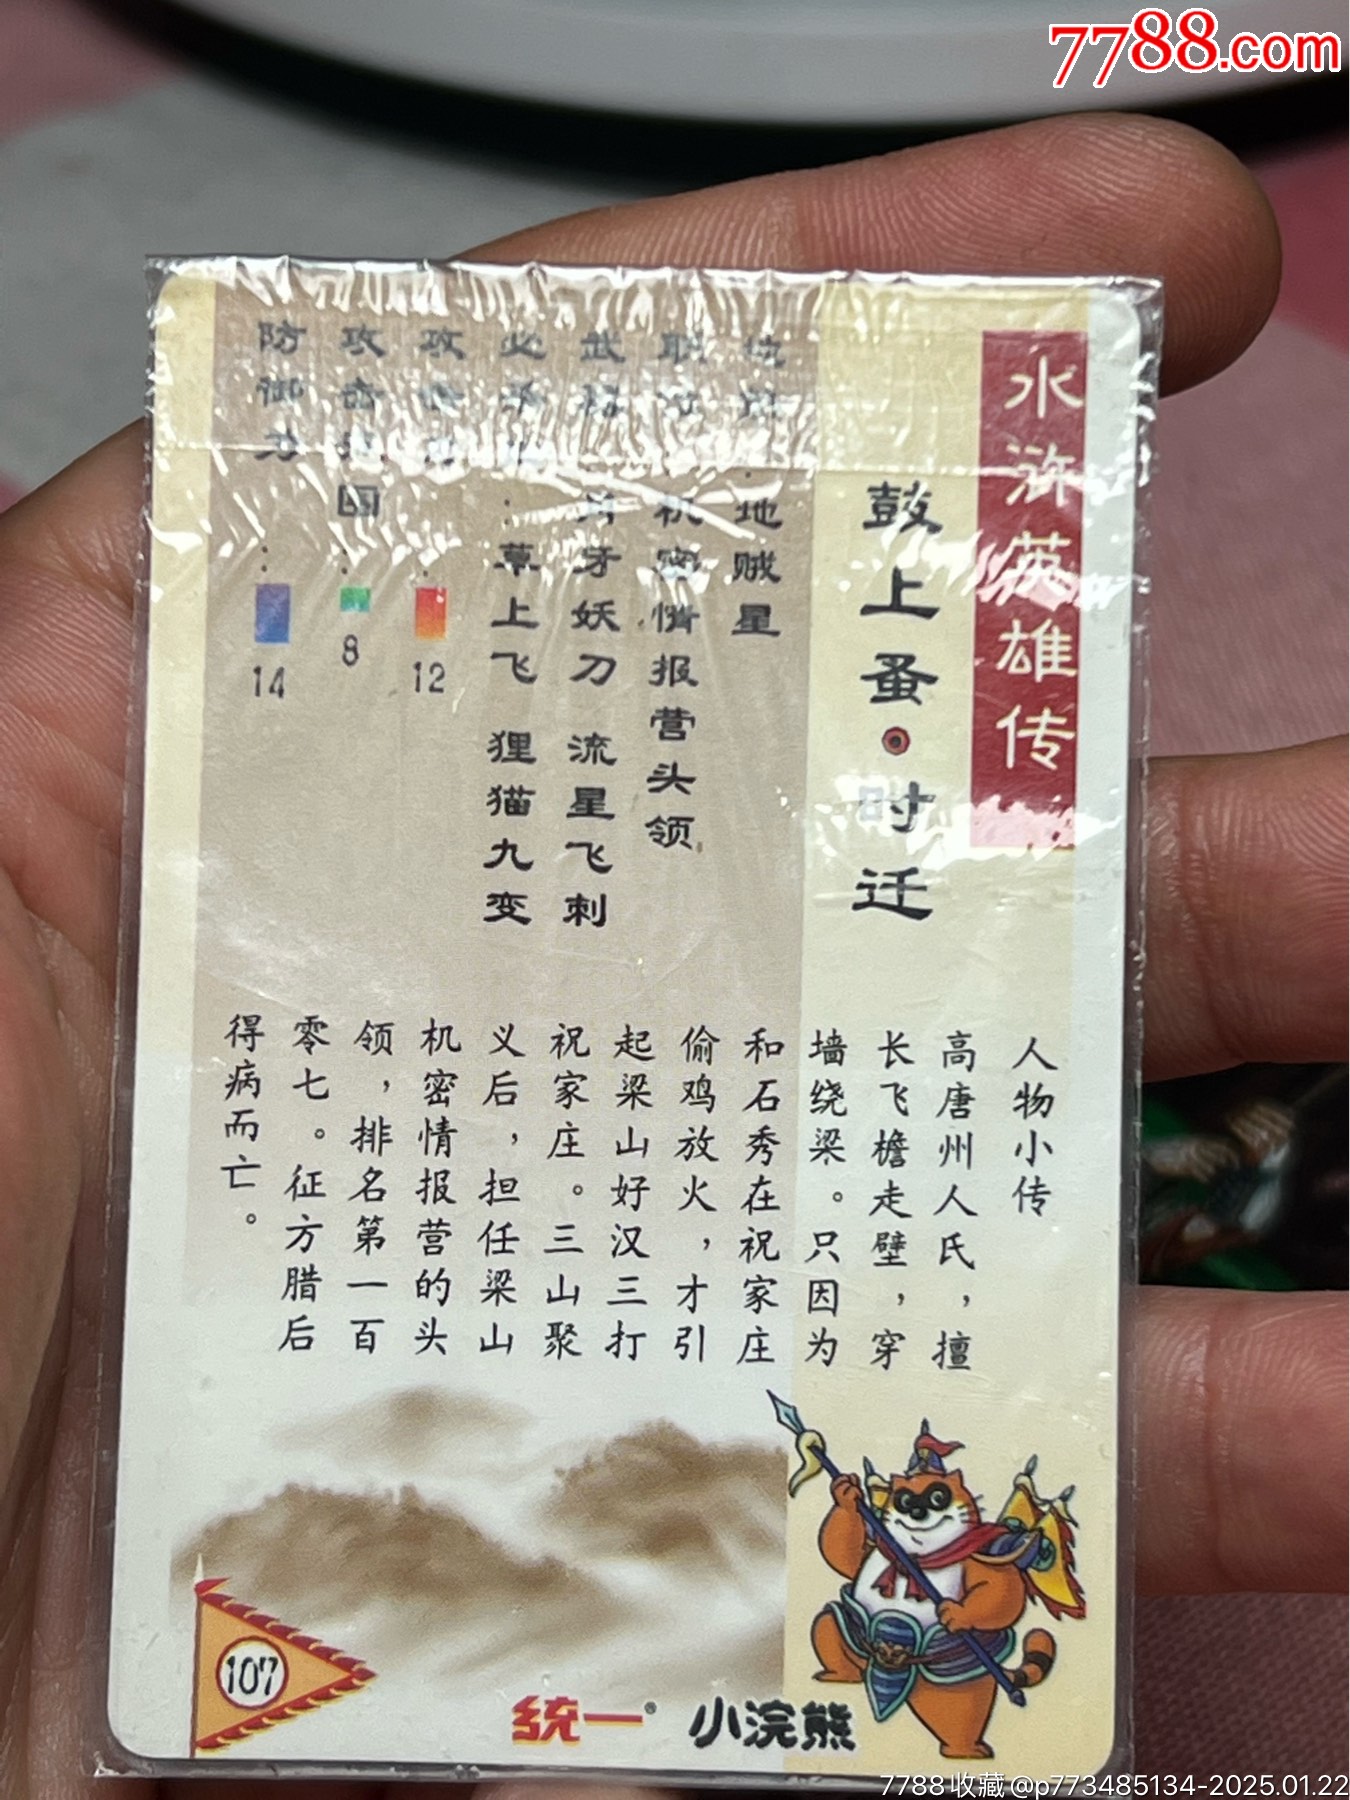 7788.com
水浒英雄传
鼓上蚤·时迁
地贼星
机密情报营头领
月牙妖刀 流星飞刺
必杀技：草上飞 狸猫九变
攻击力：12
攻击范围：8
防御力：14
人物小传
高唐州人氏，擅
长飞檐走壁，穿
墙绕梁。只因为
和石秀在祝家庄
偷鸡放火，才引
起梁山好汉三打
祝家庄。三山聚
义后，担任梁山
机密情报营的头
领，排名第一百
零七。征方腊后
得病而亡。
107
统一® 小浣熊
7788收藏@p773485134-2025.01.22